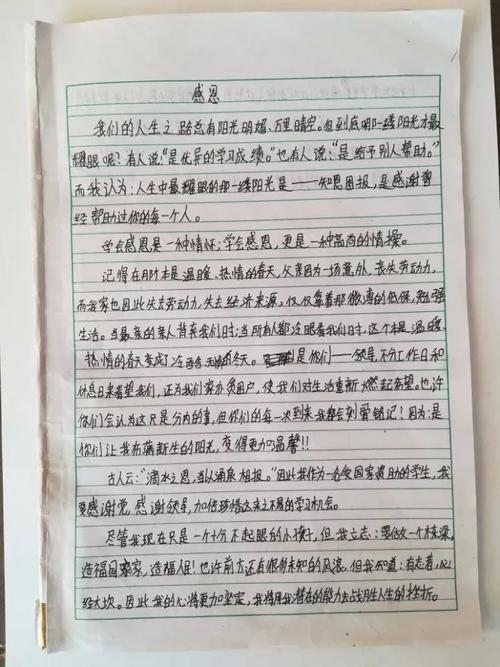 感恩
我们的人生之路总有阳光明媚、万里晴空。但到底哪一缕阳光才最
耀眼呢？有人说："是优异的学习成绩。"也有人说："是给予别人帮助。"
而我认为：人生中最耀眼的那一缕阳光是——知恩图报，是感谢曾
经帮助过你的每一个人。
学会感恩是一种情怀；学会感恩，更是一种高尚的情操。
记得在那个本是温暖、热情的春天，父亲因为一场意外，丧失劳动力，
而我家也因此失去劳动力，失去经济来源，仅仅靠着那微薄的低保，勉强
生活。当最亲的亲人背弃我们时；当所有人都冷眼看我们时，这个本是温暖、
热情的春天变成了冷的冬天。是你们——领导，不分工作日和
休息日来看望我们，还为我们家办贫困户，使我们对生活重新燃起希望。也许
你们会认为这只是分内的事，但你们的每一次到来我都会刻骨铭记！因为：是
你们让我布满新生的阳光，变得更加温馨！！
古人云："滴水之恩，当以涌泉相报。"因此我作为一名受国家资助的学生，我
要感谢党，感谢领导，加倍珍惜这来之不易的学习机会。
尽管我现在只是一个十分不起眼的小孩子，但我立志：要做一个栋梁，
造福国家，造福人民！也许前方还有很多未知的风浪，但我知道：有志者，必
经大坎。因此我的心将更加坚定，我将用我潜在的能力去战胜人生的挫折。